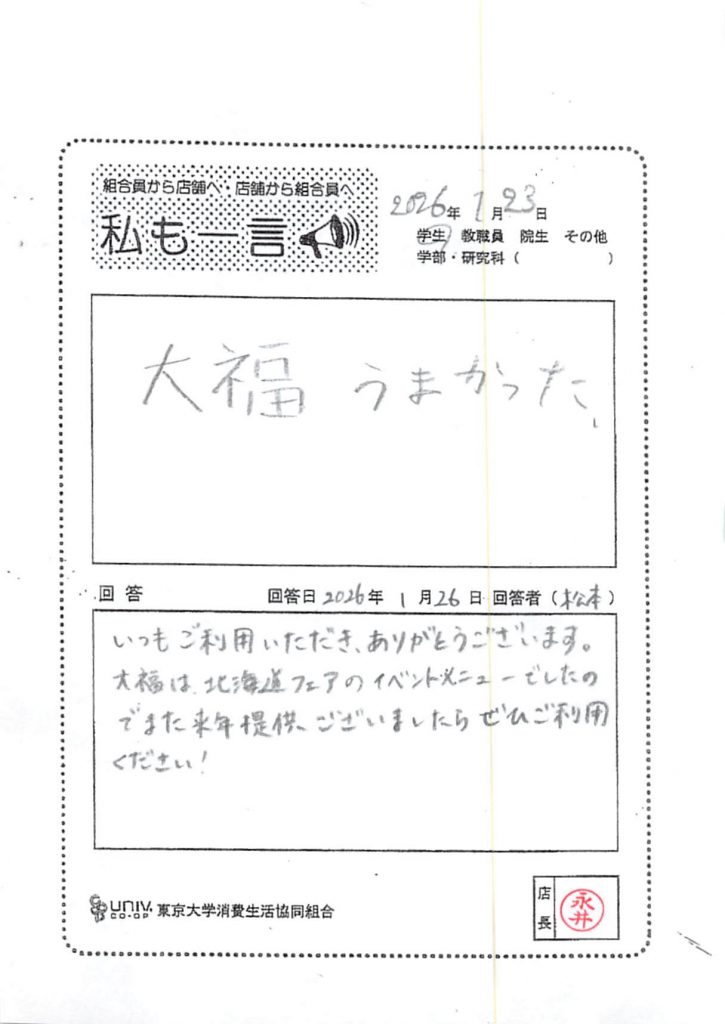 組合員から店舗へ・店舗から組合員へ
私も一言
2026年 1月23日
学生 教職員 院生 その他
学部・研究科（ ）
大福 うまかった、
回答 回答日 2026年 1月26日 回答者（松本）
いつもご利用いただき、ありがとうございます。
大福は、北海道フェアのイベントメニューでしたの
でまた来年提供、ございましたらぜひご利用
ください！
UNIV. CO-OP 東京大学消費生活協同組合
店長 永井